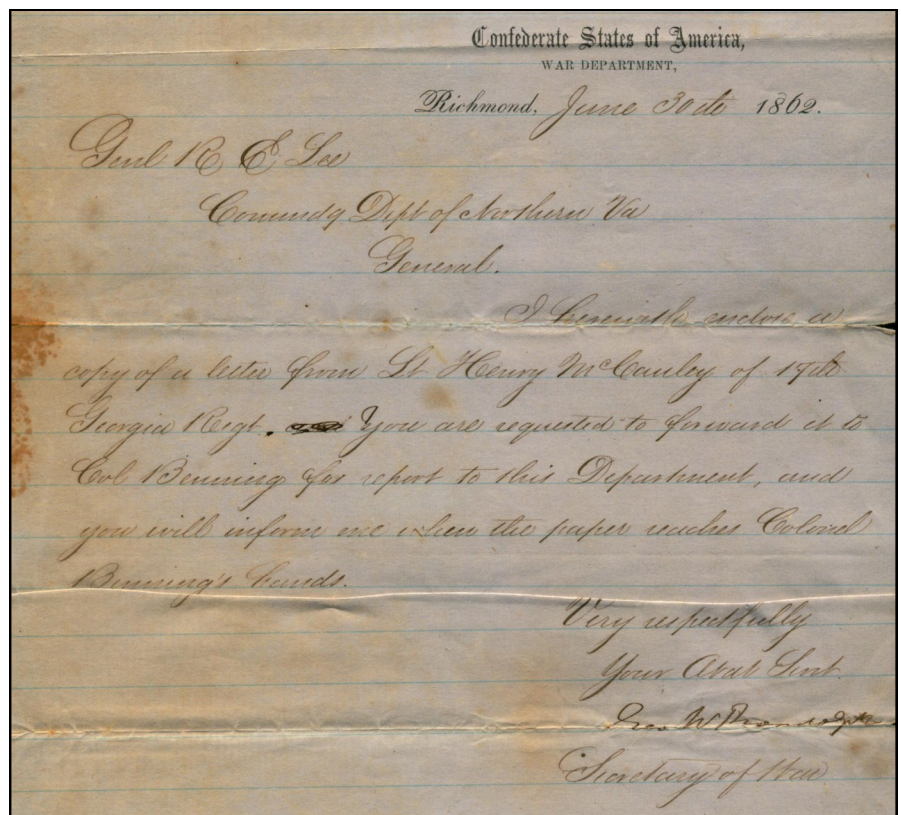 Confederate States of America,
WAR DEPARTMENT,
Richmond, June 30th 1862.
Genl R E Lee
Comundg Dept of Northern Va
General.
I herewith enclose a
copy of a letter from Lt Henry McCauley of 17th
Georgia Regt. You are requested to forward it to
Col Benning for report to this Department, and
you will inform me when the paper reaches Colonel
Benning's hands.
Very respectfully
Your Obdt Servt
Geo W Randolph
Secretary of War